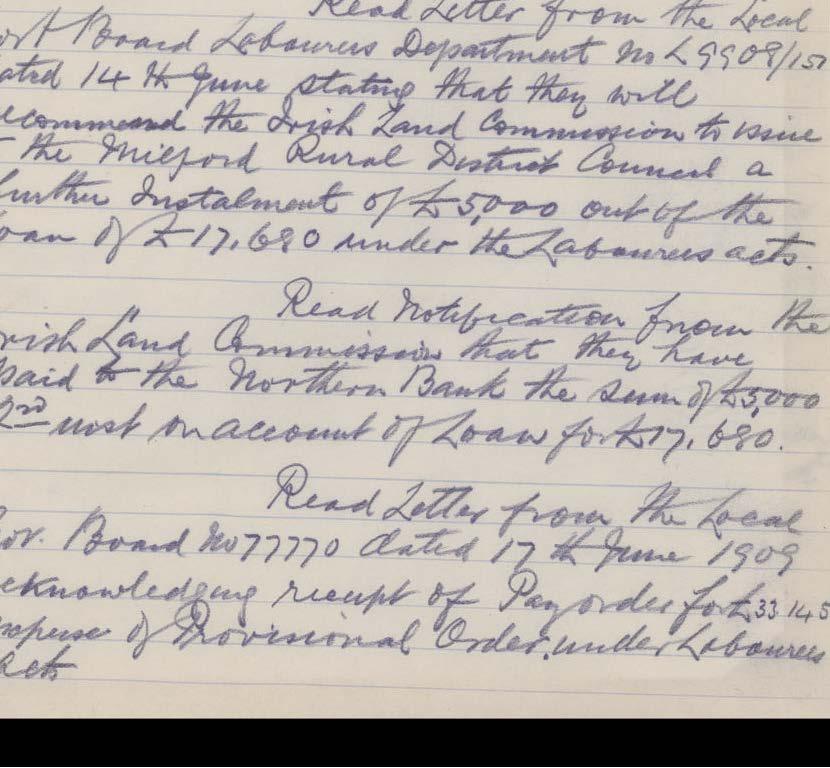 Read Letter from the Local
ovt Board Labourers Department No L 9908/151
ated 14th June stating that they will
ecommend the Irish Land Commission to issue
the Milford Rural District Council a
further Instalment of £5,000 out of the
oan of £17,680 under the Labourers acts.
Read Notification from the
rish Land Commission that they have
paid to the Northern Bank the sum of £5,000
2nd inst on account of Loan for £17,680.
Read Letter from the Local
ov. Board No 77770 dated 17th June 1909
cknowledging receipt of Payorder for £33 14 5
xpense of Provisional Order under Labourers
acts